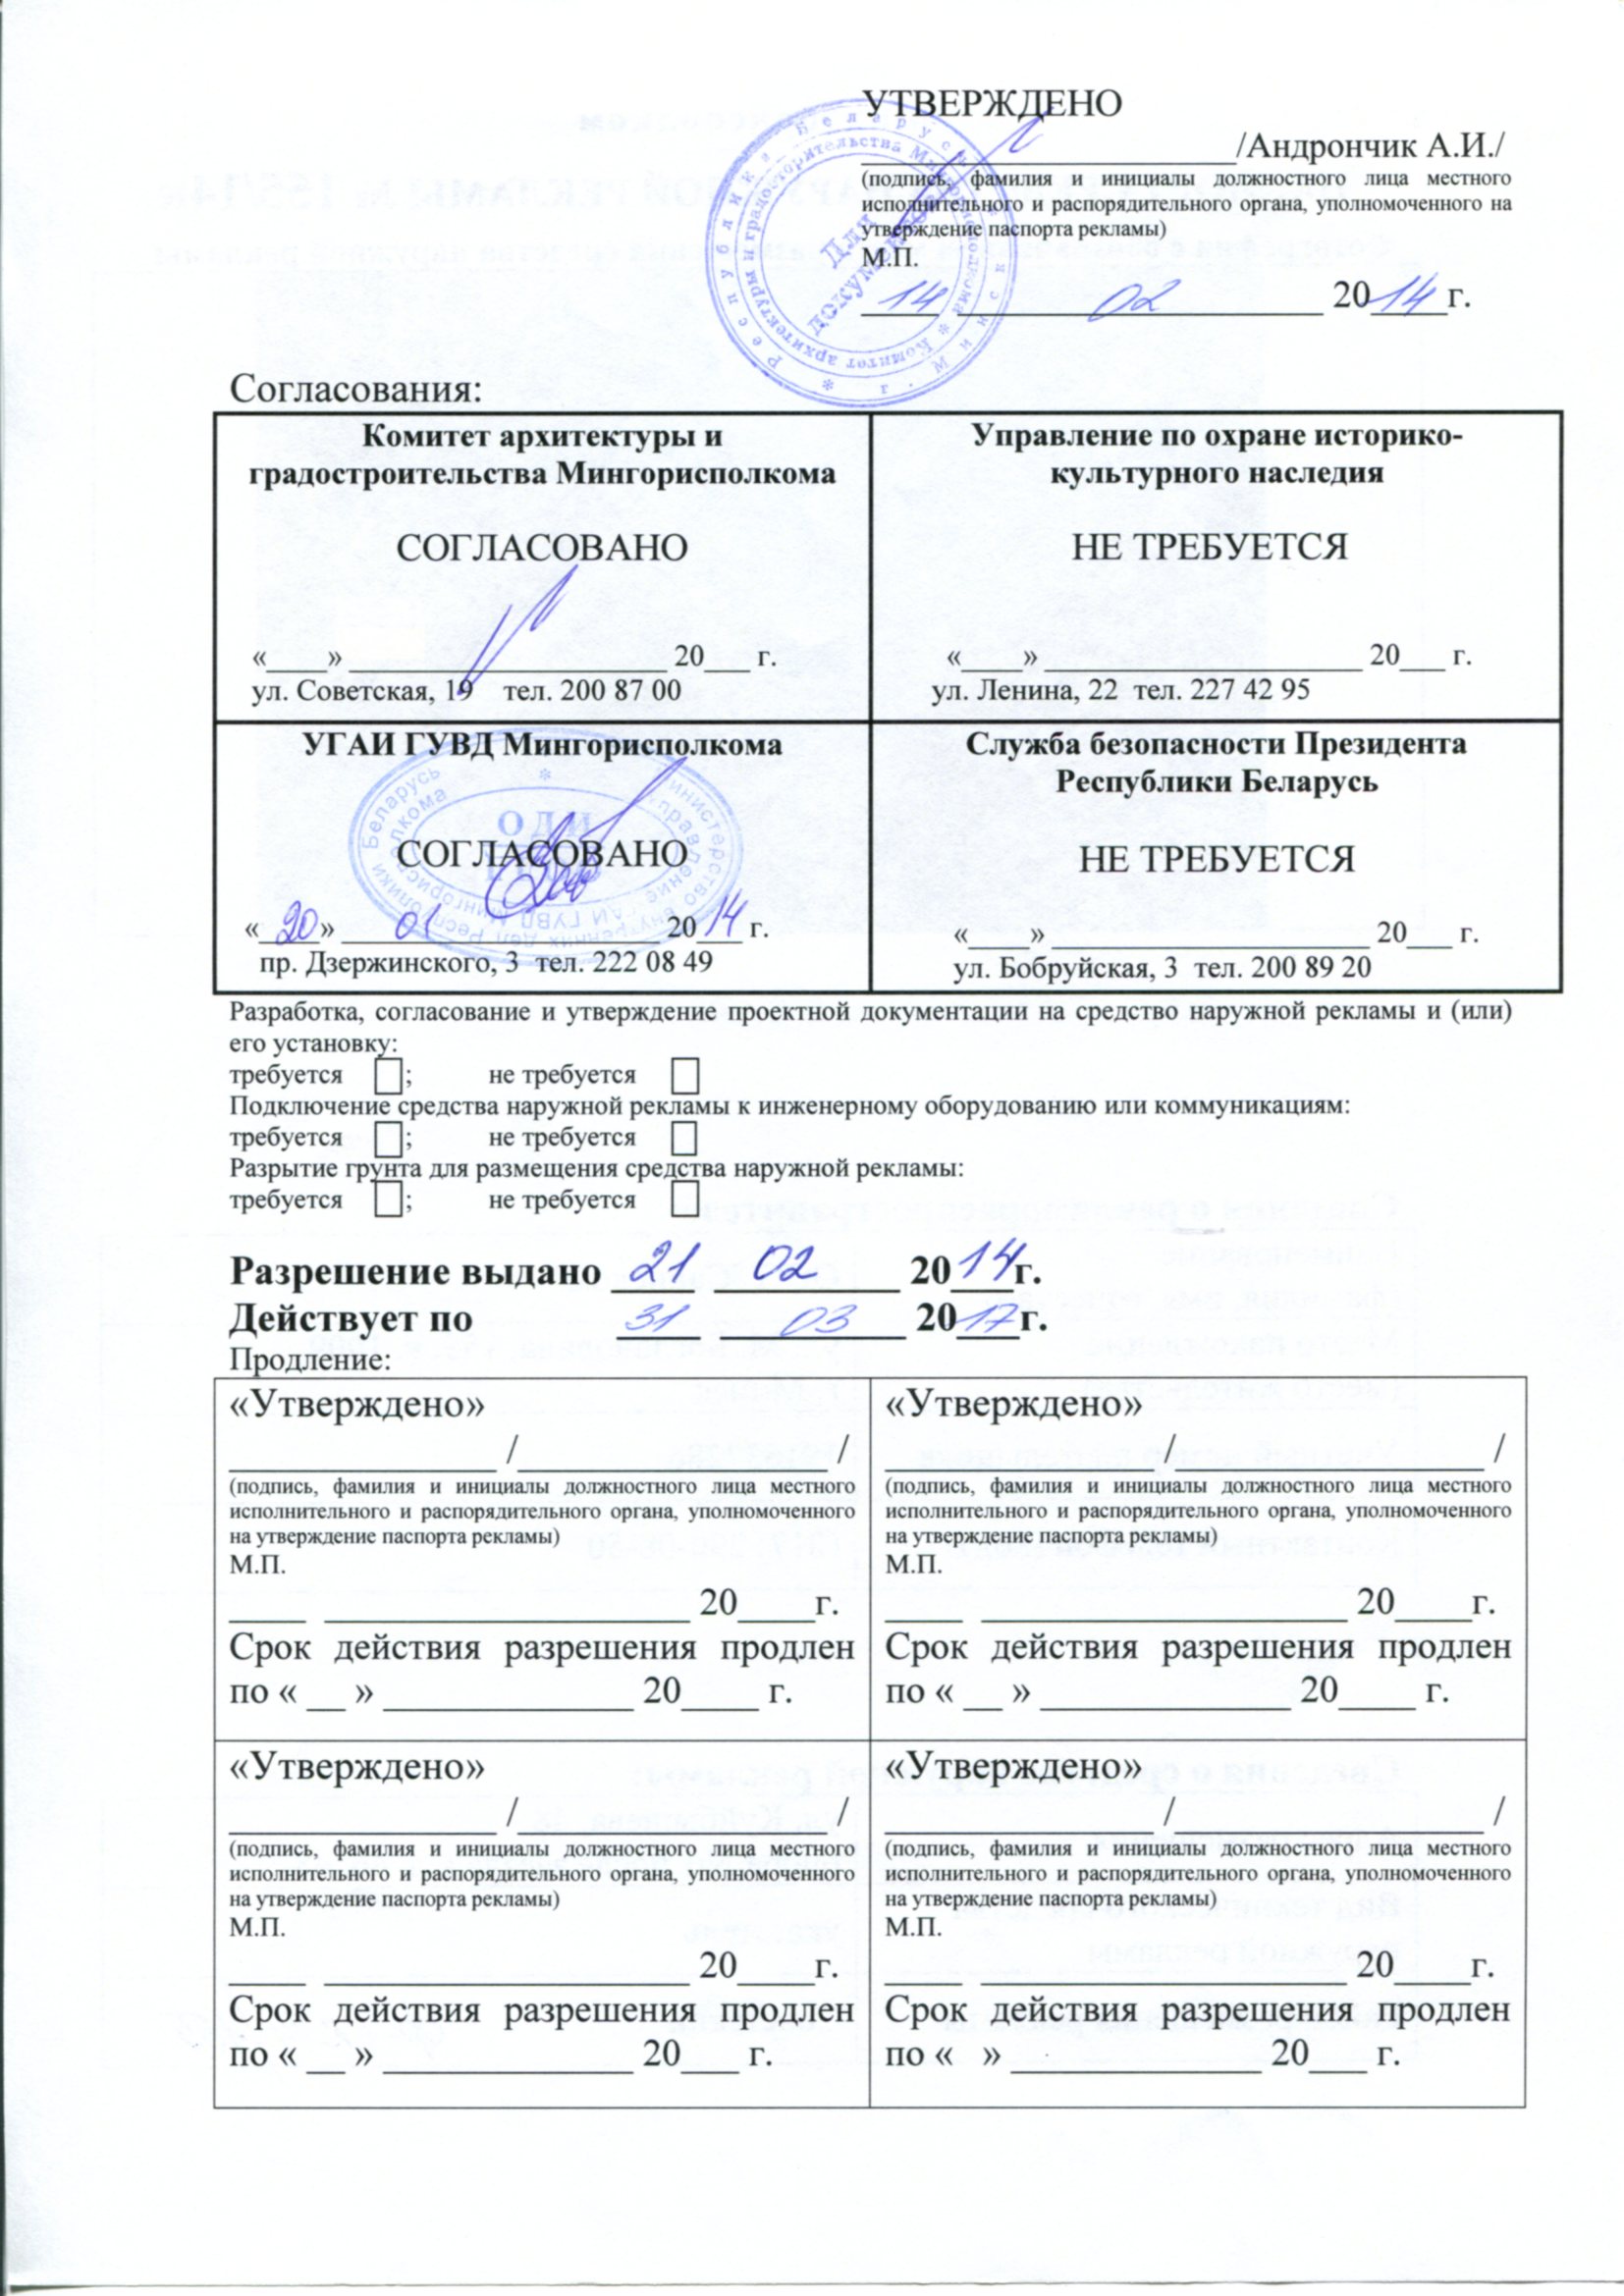 УТВЕРЖДЕНО
____________________/Андрончик А.И./
(подпись, фамилия и инициалы должностного лица местного
исполнительного и распорядительного органа, уполномоченного на
утверждение паспорта рекламы)
М.П.
14 02 2014 г.
Республика Беларусь * г. Минск *
Комитет архитектуры и градостроительства Мингорисполкома *
Для
документов
Согласования:
Комитет архитектуры и
градостроительства Мингорисполкома
СОГЛАСОВАНО
«____» ____________________ 20___ г.
ул. Советская, 19 тел. 200 87 00
Управление по охране историко-
культурного наследия
НЕ ТРЕБУЕТСЯ
«____» ____________________ 20___ г.
ул. Ленина, 22 тел. 227 42 95
УГАИ ГУВД Мингорисполкома
СОГЛАСОВАНО
«20» 01 2014 г.
пр. Дзержинского, 3 тел. 222 08 49
Служба безопасности Президента
Республики Беларусь
НЕ ТРЕБУЕТСЯ
«____» ____________________ 20___ г.
ул. Бобруйская, 3 тел. 200 89 20
Разработка, согласование и утверждение проектной документации на средство наружной рекламы и (или)
его установку:
требуется ; не требуется
Подключение средства наружной рекламы к инженерному оборудованию или коммуникациям:
требуется ; не требуется
Разрытие грунта для размещения средства наружной рекламы:
требуется ; не требуется
Разрешение выдано 21 02 2014 г.
Действует по 31 03 2017 г.
Продление:
«Утверждено»
______________ /________________ /
(подпись, фамилия и инициалы должностного лица местного
исполнительного и распорядительного органа, уполномоченного
на утверждение паспорта рекламы)
М.П.
____ ___________________ 20____г.
Срок действия разрешения продлен
по « __ » _____________ 20____ г.
«Утверждено»
______________ /________________ /
(подпись, фамилия и инициалы должностного лица местного
исполнительного и распорядительного органа, уполномоченного
на утверждение паспорта рекламы)
М.П.
____ ___________________ 20____г.
Срок действия разрешения продлен
по « __ » _____________ 20____ г.
«Утверждено»
______________ /________________ /
(подпись, фамилия и инициалы должностного лица местного
исполнительного и распорядительного органа, уполномоченного
на утверждение паспорта рекламы)
М.П.
____ ___________________ 20____г.
Срок действия разрешения продлен
по « __ » _____________ 20___ г.
«Утверждено»
______________ /________________ /
(подпись, фамилия и инициалы должностного лица местного
исполнительного и распорядительного органа, уполномоченного
на утверждение паспорта рекламы)
М.П.
____ ___________________ 20____г.
Срок действия разрешения продлен
по « » _____________ 20___ г.